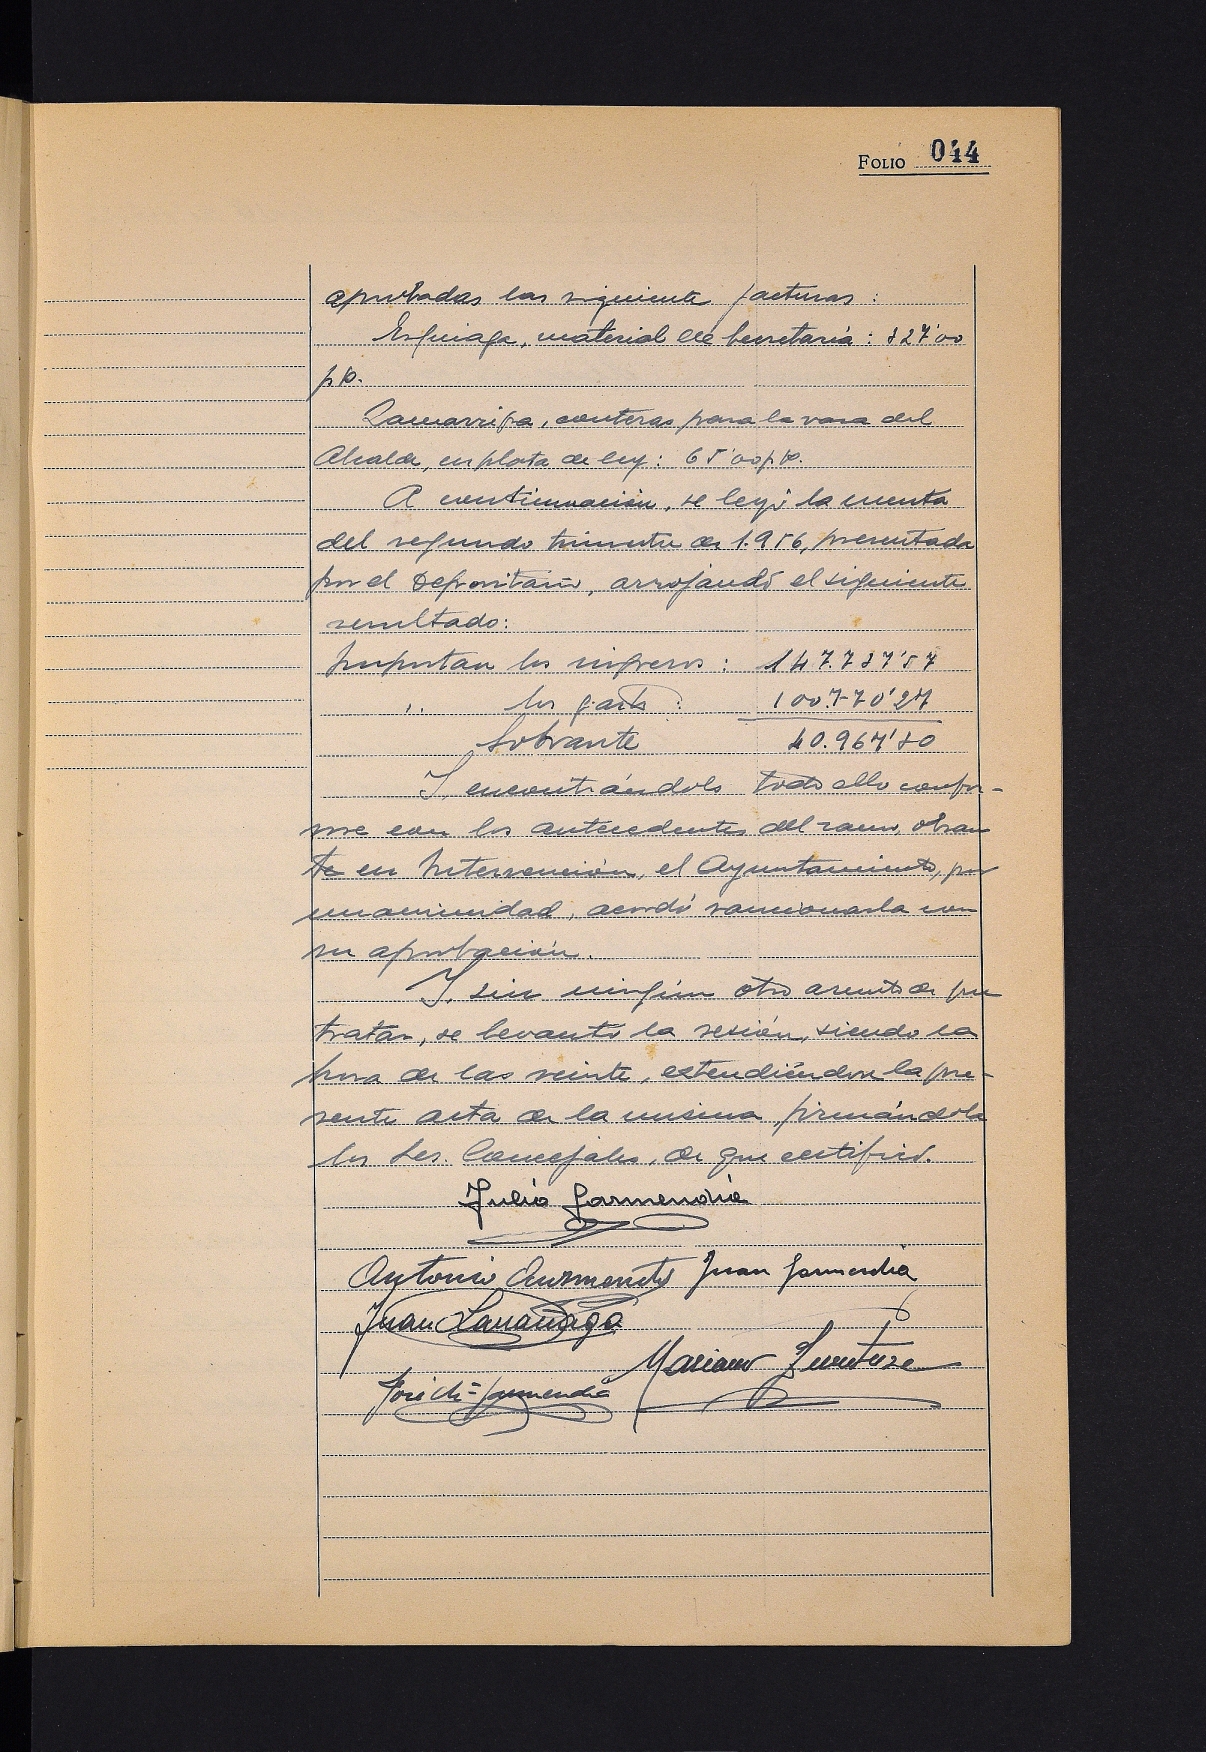 FOLIO 044
aprobadas las siguiente facturas :
Esquiaga, material de Secretaría : 827'00
pts.
Lamarrifa, conteras para la vara del
Alcalde, en plata de ley : 65'00 pts.
A continuación, se leyó la cuenta
del segundo trimestre de 1.956, presentada
por el Depositario, arrojando el siguiente
resultado:
Importan los ingresos : 147.737'57
" los gastos : 100.770'27
Sobrante 40.967'30
Y, encontrándolo todo ello confor-
me con los antecedentes del ramo, obran
te en Intervención, el Ayuntamiento, por
unanimidad, acordó sancionarla con
su aprobación.
Y, sin ningún otro asunto de que
tratar, se levantó la sesión, siendo la
hora de las veinte, extendiéndose la pre-
sente acta de la misma, firmándola
los Sres. Concejales, de que certifico.
Julio Garmendia
Antonio Aurmendi Juan Garmendia
Juan Larrañaga
Mariano Zunturre
José Mª Garmendia